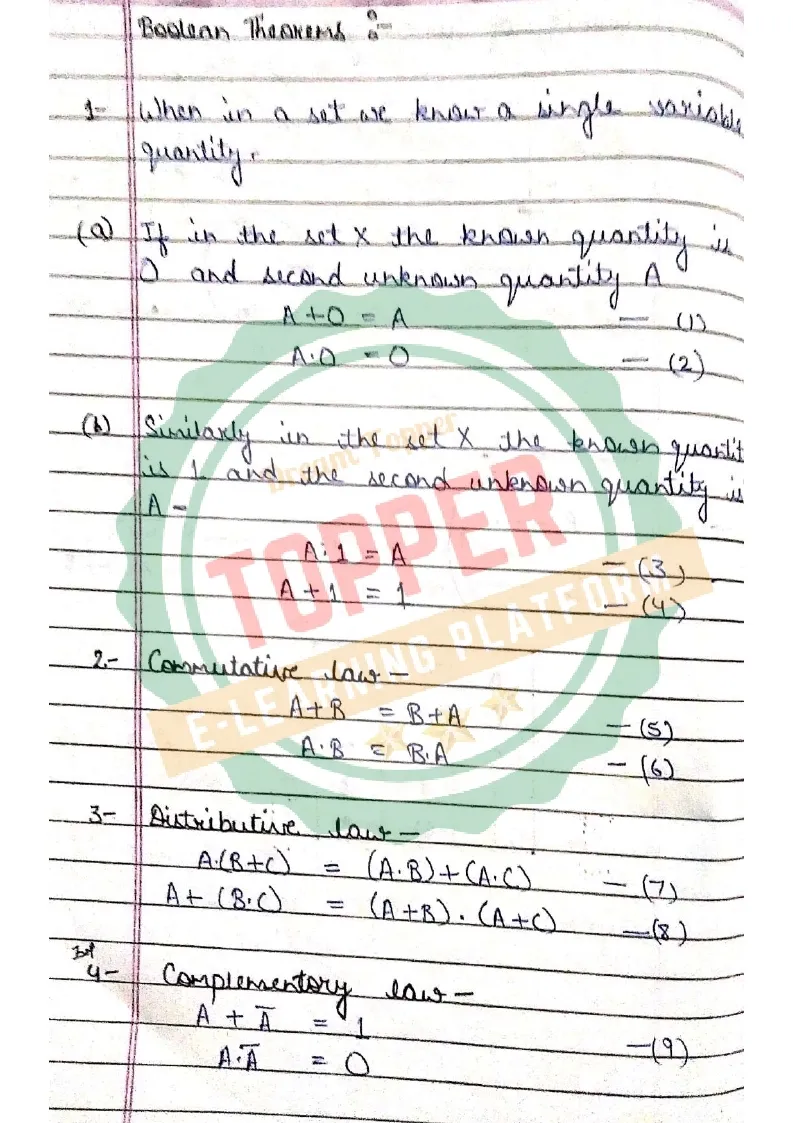 Boolean Theorems :-
1- When in a set we know a single variable
quantity.
(a) If in the set X the known quantity is
0 and second unknown quantity A
A+0 = A — (1)
A.0 = 0 — (2)
(b) Similarly in the set X the known quantit
is 1 and the second unknown quantity is
A -
A.1 = A — (3)
A+1 = 1 — (4)
2- Commutative law —
A+B = B+A — (5)
A.B = B.A — (6)
3- Distributive law —
A.(B+C) = (A.B)+(A.C) — (7)
A+ (B.C) = (A+B).(A+C) — (8)
4- Complementory law —
A + A̅ = 1
A.A̅ = 0 — (9)
Dream Topper
TOPPER
E-LEARNING PLATFORM